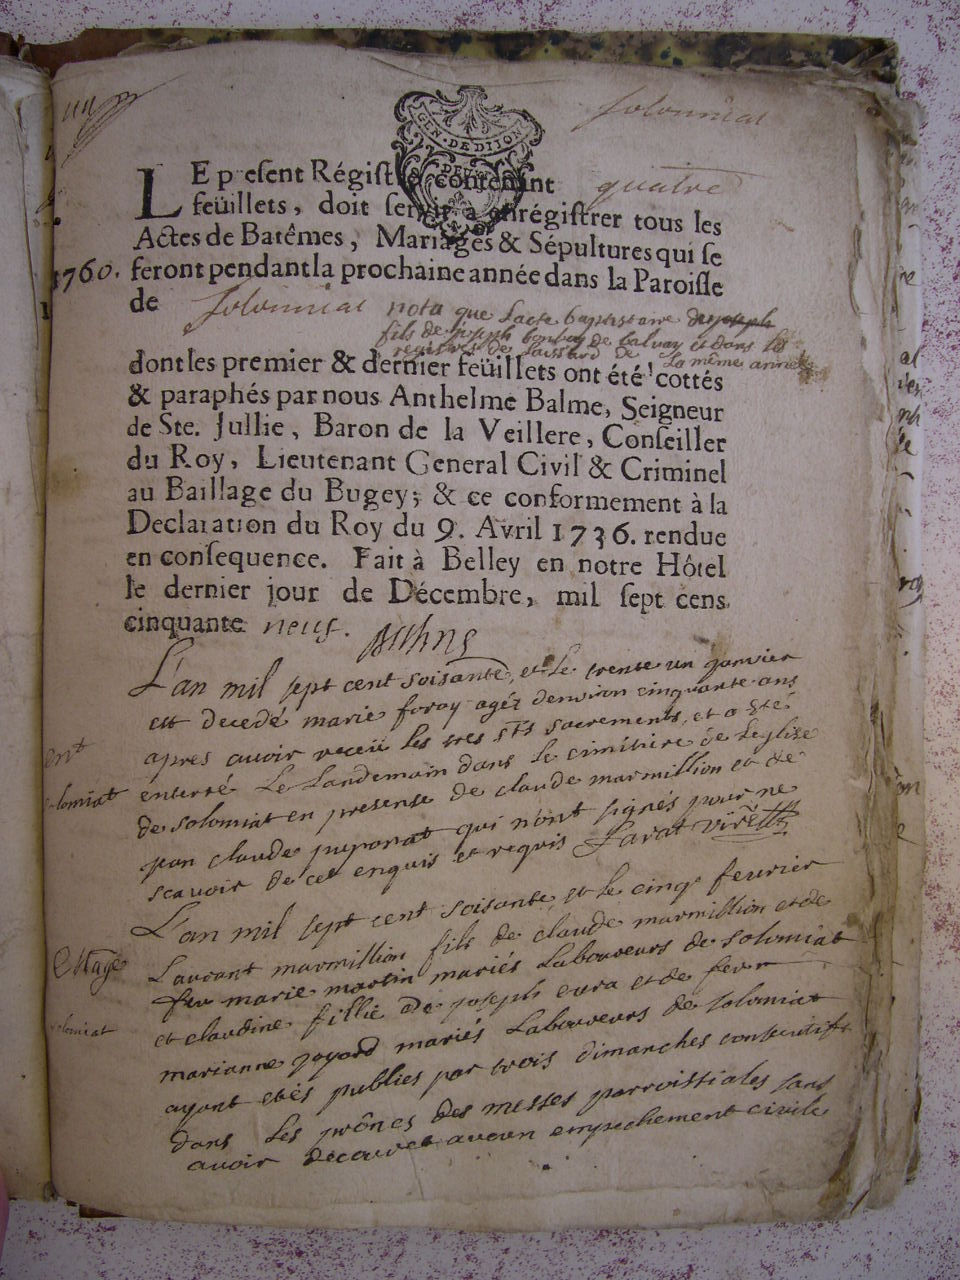 solomiat
GEN. DE DIJON
LE present Régistre contenant quatre
feüillets, doit servir a enrégistrer tous les
Actes de Batêmes, Mariages & Sépultures qui se
1760. feront pendant la prochaine année dans la Paroisse
de Solomiat nota que lacte baptistaire de joseph
fils de joseph de balvay et dans les
registres de de la même année
dont les premier & dernier feüillets ont été cottés
& paraphés par nous Anthelme Balme, Seigneur
de Ste. Jullie, Baron de la Veillere, Conseiller
du Roy, Lieutenant General Civil & Criminel
au Baillage du Bugey; & ce conformement à la
Declaration du Roy du 9. Avril 1736. rendue
en consequence. Fait à Belley en notre Hôtel
le dernier jour de Décembre, mil sept cens
cinquante neuf.
L'an mil sept cent soisante, et le trente un janvier
est decedé marie foray agéé denviron cinquante ans
apres avoir receü les tres sts sacrements, et a eté
enterré le Landemain dans le cimitiere de Leglise
de solomiat en presense de claude marmillion et de
jean claude puponat qui n'ont signés pour ne
scavoir de ce enquis et requis Farat vire
L'an mil sept cent soisante, et le cinq fevrier
Laurant marmillion fils de claude marmillion et de
feu marie martin mariés Laboureurs de solomiat
et claudine fillie de joseph eura et de feue
marianne joyard mariés Laboureurs de solomiat
ayant etés publies par trois dimanches consecutifs
dans Les prônes des messes parroissiales sans
avoir decouvet aucun empechement civile